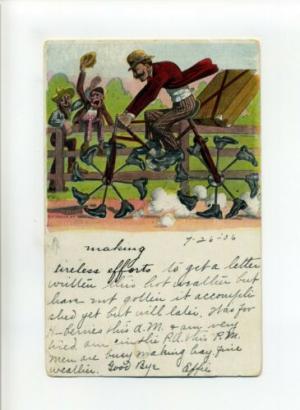 7-26-06
making
tireless efforts to get a letter
written this hot weather but
have not gotten it accompli
shed yet but will later. Was for
H-Berries this A.M. & am very
tired am in the P.M.
men are busy making hay. fine
weather. Good Bye Effie